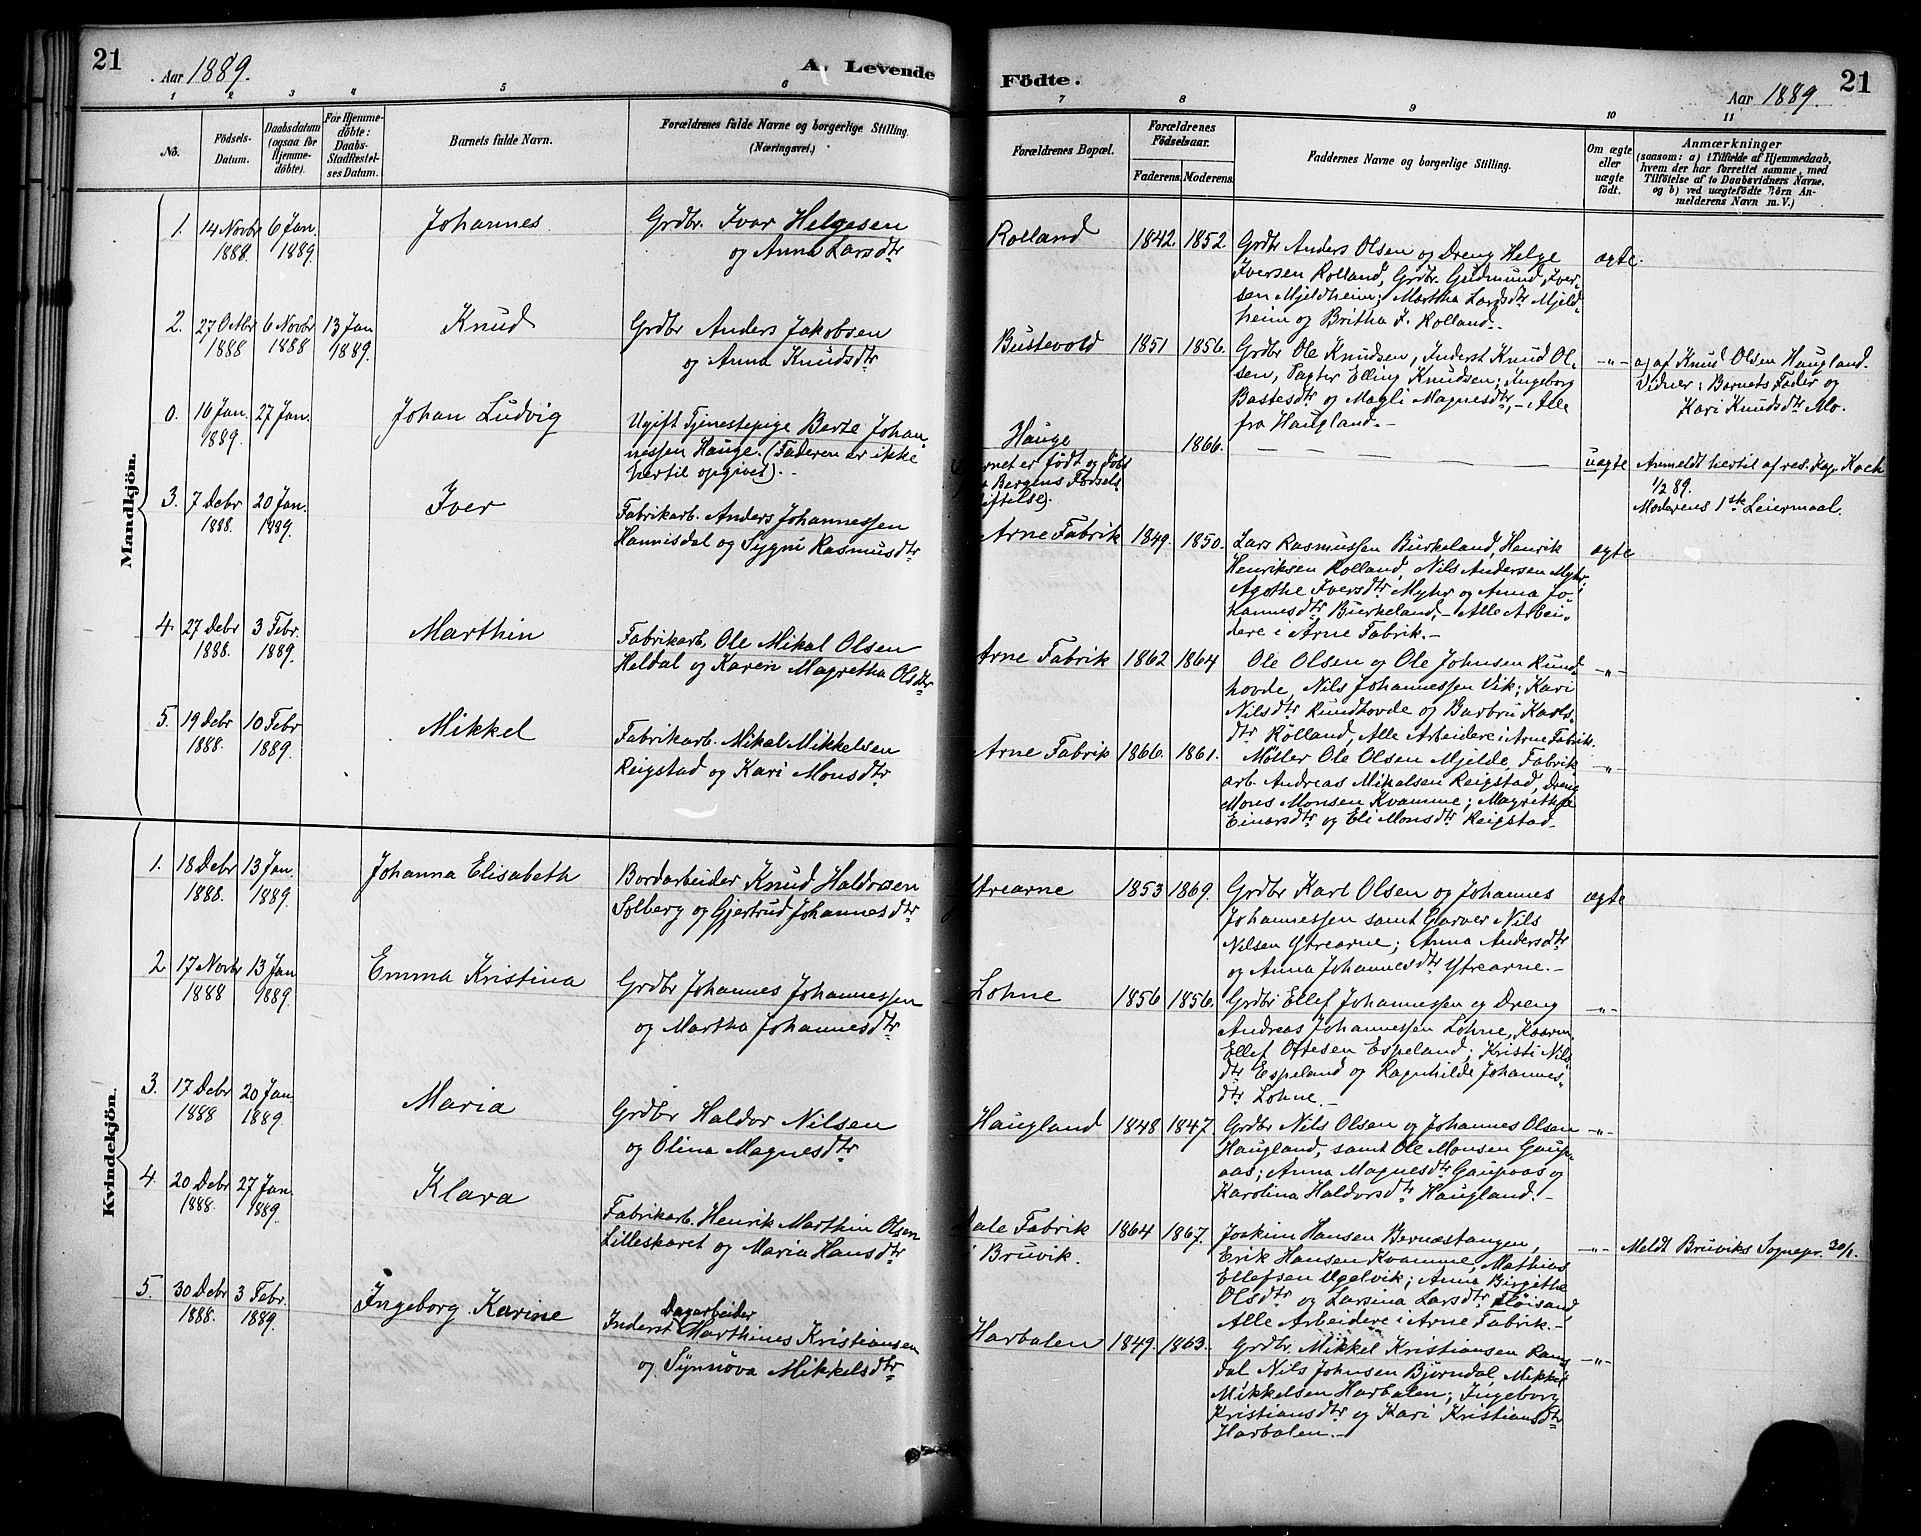 21
Aar 1889.
A. Levende
Födte.
Aar 1889.
21
1 2 3 4 5 6 7 8 9 10 11
No.
Födsels-Datum.
Daabsdatum (ogsaa for Hjemme-döbte).
For Hjemme-döbte: Daabs-Stadfæstel-ses Datum.
Barnets fulde Navn.
Forældrenes fulde Navne og borgerlige Stilling.
(Næringsvei.)
Forældrenes Bopæl.
Forældrenes Födselsaar.
Faderens. Moderens.
Faddernes Navne og borgerlige Stilling.
Om ægte eller uægte födt.
Anmærkninger
(saasom: a) i Tilfælde af Hjemmedaab,
hvem der har forrettet samme, med
Tilföielse af to Daabsvidners Navne,
og b) ved uægtefödte Börn An-
melderens Navn m. V.)
Mandkjön.
1. 14 Novbr 1888. 6 Jan. 1889.
Johannes
Grdbr. Ivar Helgesen
og Anna Larsdtr
Rolland 1842. 1852.
Grdbr Anders Olsen og Dreng Helge
Iversen Rolland, Grdbr. Gudmund Iver-
sen Mjeldheim; Martha Larsdtr Mjeld-
heim og Britha J. Rolland.-
ægte.
2. 27 Otbr 1888 6 Novbr 1888 13 Jan 1889.
Knud
Grdbr Anders Jakobsen
og Anna Knudsdtr
Bustevold 1851 1856.
Grdbr Ole Knudsen, Inderst Knud Ol-
sen, Pagter Elling Knudsen; Ingeborg
Bastesdtr og Magli Magnesdtr, - Alle
fra Haugland.-
-"-
a) af Knud Olsen Haugland.
Vidner: Barnets Fader og
Kari Knudsdtr Mo.
0. 16 Jan. 1889. 27 Jan.
Johan Ludvig
Ugift Tjenestepige Berte Johan-
nessen Hauge. (Faderen er ikke
hertil opgivet).-
Hauge 1866.
rnet er födt og döbt
Bergens Födsels
iftelse).
uægte
Anmeldt hertil af res. Kap. Koch
1/2 89.
Moderens 1ste Leiermaal.
3. 7 Debr 1888. 20 Jan. 1889.
Iver
Fabrikarb. Anders Johannessen
Hannisdal og Sygni Rasmusdtr
Arne Fabrik 1849. 1850.
Lars Rasmussen Burkeland, Henrik
Henriksen Rolland, Nils Andersen Myhr,
Agathe Iversdtr Myhr og Anna Jo-
hannesdtr Burkeland, - Alle Arbei-
dere i Arne Fabrik.-
ægte
4. 27 Debr 1888. 3 Febr. 1889.
Marthin
Fabrikarb. Ole Mikal Olsen
Heldal og Karen Magretha Olsdtr
Arne Fabrik 1862 1864
Ole Olsen og Ole Johnsen Rund-
hovde, Nils Johannessen Vik; Kari
Nilsdtr Rundhovde og Barbru Karls-
dtr Rolland, Alle Arbeidere i Arne Fabrik.
-"-
5. 19 Debr 1888. 10 Febr 1889.
Mikkel
Fabrikarb. Mikal Mikkelsen
Reigstad og Kari Monsdtr
Arne Fabrik 1866. 1861.
Møller Ole Olsen Mjelde, Fabrik-
arb. Andreas Mikalsen Reigstad, Dreng
Mons Monsen Kvamme; Magrethe
Einarsdtr og Eli Monsdtr Reigstad-
-"-
Kvindekjön.
1. 18 Debr 1888. 13 Jan. 1889.
Johanna Elisabeth
Bordarbeider Knud Haldorsen
Solberg og Gjertrud Johannesdtr
Ytrearne 1853 1869.
Grdbr Karl Olsen og Johannes
Johannessen samt Garver Nils
Nilsen Ytrearne; Anna Andersdtr
og Anna Johannesdtr Ytrearne.-
ægte
2 17 Novbr 1888 13 Jan 1889.
Emma Kristina
Grdbr Johannes Johannessen
og Martha Johannesdtr
Lohne 1856 1856.
Grdbr Ellef Johannessen og Dreng
Andreas Johannessen Lohne, Kaarm.
Ellef Oftesen Espeland; Kristi Nils-
dtr Espeland og Ragnhilde Johannes-
dtr Lohne.-
-"-
3. 17 Debr 1888 20 Jan 1889.
Maria
Grdbr Haldor Nilsen
og Olina Magnesdtr
Haugland 1848 1847.
Grdbr Nils Olsen og Johannes Olsen
Haugland, samt Ole Monsen Gaup-
aas; Anna Magnesdtr Gaupaas og
Karolina Haldorsdtr Haugland.-
-"-
4. 20 Debr 1888. 27 Jan. 1889.
Klara
Fabrikarb. Henrik Marthin Olsen
Lilleskaret og Maria Hansdtr
Dale Fabrik
i Bruvik. 1864 1867.
Joakim Hansen Bernæstangen,
Erik Hansen Kvamme, Mathias
Ellefsen Ugelvik; Anna Birgithe
Olsdtr og Larsina Larsdtr Fløisand
Alle Arbeidere i Arne Fabrik.-
-"-
Meldt Bruviks Sognepr. 30/1.
5. 30 Debr 1888. 3 Febr. 1889.
Ingeborg Karine
Dagarbeider
Inderst Marthines Kristiansen
og Synnøva Mikkelsdtr
Harbalen 1849. 1863.
Grdbr. Mikkel Kristiansen Rams-
dal Nils Johnsen Björndal, Mikkel
Mikkelsen Harbalen; Ingeborg
Kristiansdtr og Kari Kristiansdtr
Harbalen.-
-"-